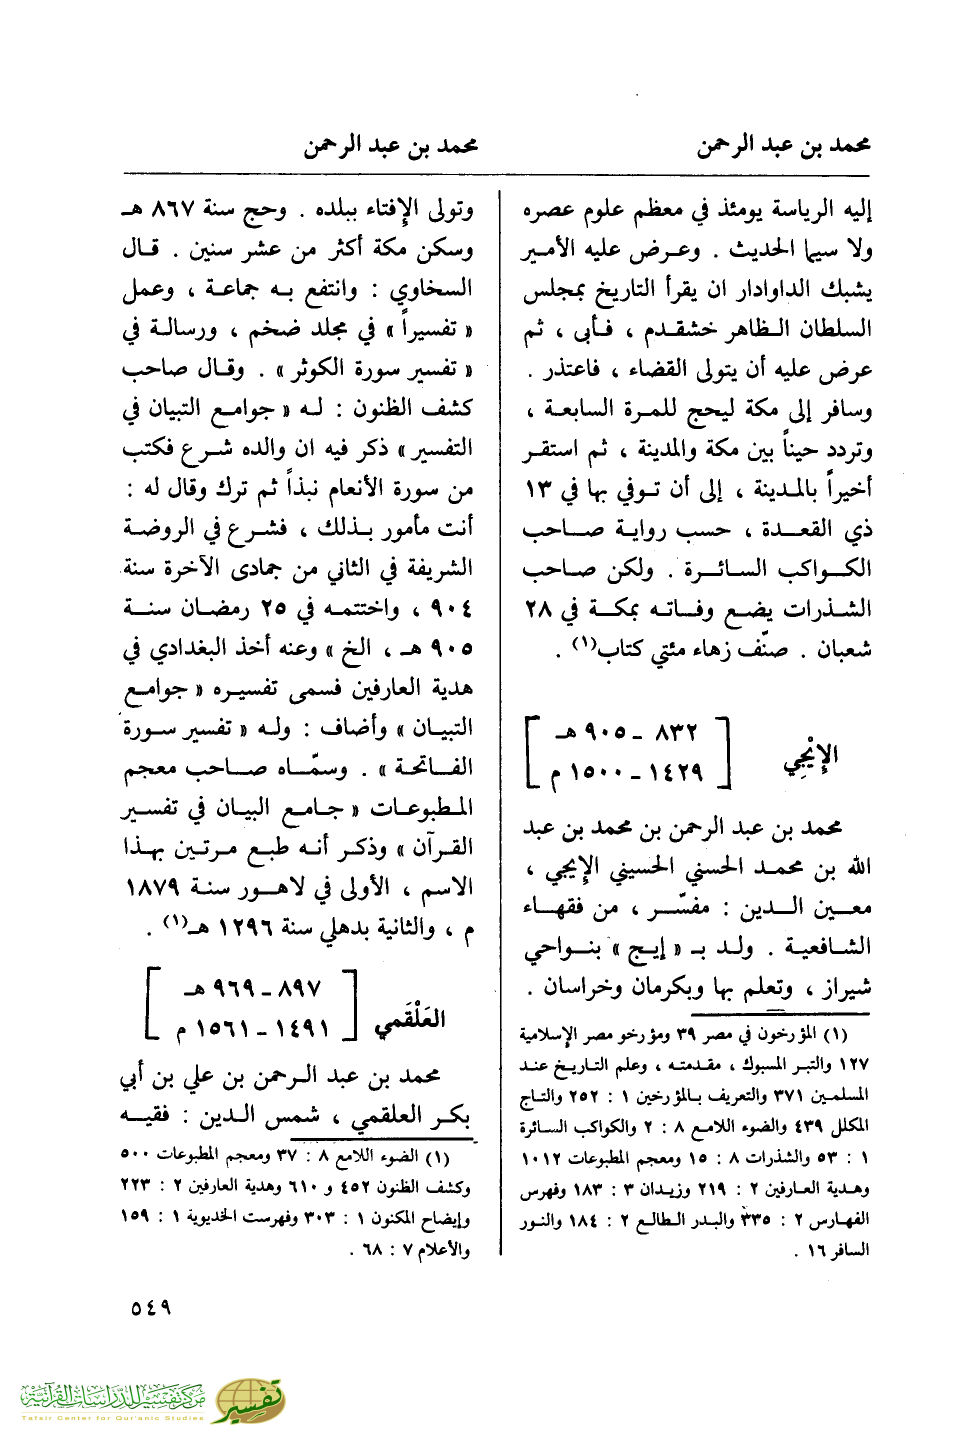 محمد بن عبد الرحمن
محمد بن عبد الرحمن
إليه الرياسة يومئذ في معظم علوم عصره
ولا سيما الحديث . وعرض عليه الأمير
يشبك الداوادار ان يقرأ التاريخ بمجلس
السلطان الظاهر خشقدم ، فأبى ، ثم
عرض عليه أن يتولى القضاء ، فاعتذر .
وسافر إلى مكة ليحج للمرة السابعة ،
وتردد حيناً بين مكة والمدينة ، ثم استقر
أخيراً بالمدينة ، إلى أن توفي بها في ١٣
ذي القعدة ، حسب رواية صاحب
الكواكب السائرة . ولكن صاحب
الشذرات يضع وفاته بمكة في ٢٨
شعبان . صنّف زهاء مئتي كتاب(١) .
الإيْجِي [ ٨٣٢ - ٩٠٥ هـ
١٤٢٩ - ١٥٠٠ م ]
محمد بن عبد الرحمن بن محمد بن عبد
الله بن محمد الحسني الحسيني الإيجي ،
معين الدين : مفسّر ، من فقهاء
الشافعية . ولد بـ « إيج » بنواحي
شيراز ، وتعلم بها وبكرمان وخراسان .
(١) المؤرخون في مصر ٣٩ ومؤرخو مصر الإسلامية
١٢٧ والتبر المسبوك ، مقدمته ، وعلم التاريخ عند
المسلمين ٣٧١ والتعريف بالمؤرخين ١ : ٢٥٢ والتاج
المكلل ٤٣٩ والضوء اللامع ٨ : ٢ والكواكب السائرة
١ : ٥٣ والشذرات ٨ : ١٥ ومعجم المطبوعات ١٠١٢
وهدية العارفين ٢ : ٢١٩ وزيدان ٣ : ١٨٣ وفهرس
الفهارس ٢ : ٣٣٥ والبدر الطالع ٢ : ١٨٤ والنور
السافر ١٦ .
وتولى الإفتاء ببلده . وحج سنة ٨٦٧ هـ
وسكن مكة أكثر من عشر سنين . قال
السخاوي : وانتفع به جماعة ، وعمل
« تفسيراً » في مجلد ضخم ، ورسالة في
« تفسير سورة الكوثر » . وقال صاحب
كشف الظنون : له « جوامع التبيان في
التفسير » ذكر فيه ان والده شرع فكتب
من سورة الأنعام نبذاً ثم ترك وقال له :
أنت مأمور بذلك ، فشرع في الروضة
الشريفة في الثاني من جمادى الآخرة سنة
٩٠٤ ، واختتمه في ٢٥ رمضان سنة
٩٠٥ هـ ، الخ » وعنه أخذ البغدادي في
هدية العارفين فسمى تفسيره « جوامع
التبيان » وأضاف : وله « تفسير سورة
الفاتحة » . وسمّاه صاحب معجم
المطبوعات « جامع البيان في تفسير
القرآن » وذكر أنه طبع مرتين بهذا
الاسم ، الأولى في لاهور سنة ١٨٧٩
م ، والثانية بدهلي سنة ١٢٩٦ هـ(١) .
العَلْقَمي [ ٨٩٧ - ٩٦٩ هـ
١٤٩١ - ١٥٦١ م ]
محمد بن عبد الرحمن بن علي بن أبي
بكر العلقمي ، شمس الدين : فقيه
(١) الضوء اللامع ٨ : ٣٧ ومعجم المطبوعات ٥٠٠
وكشف الظنون ٤٥٢ و ٦١٠ وهدية العارفين ٢ : ٢٢٣
وإيضاح المكنون ١ : ٣٠٣ وفهرست الخديوية ١ : ١٥٩
والأعلام ٧ : ٦٨ .
٥٤٩
مركز تفسير للدراسات القرآنية
Tafsir Center for Qur'anic Studies
تفسير